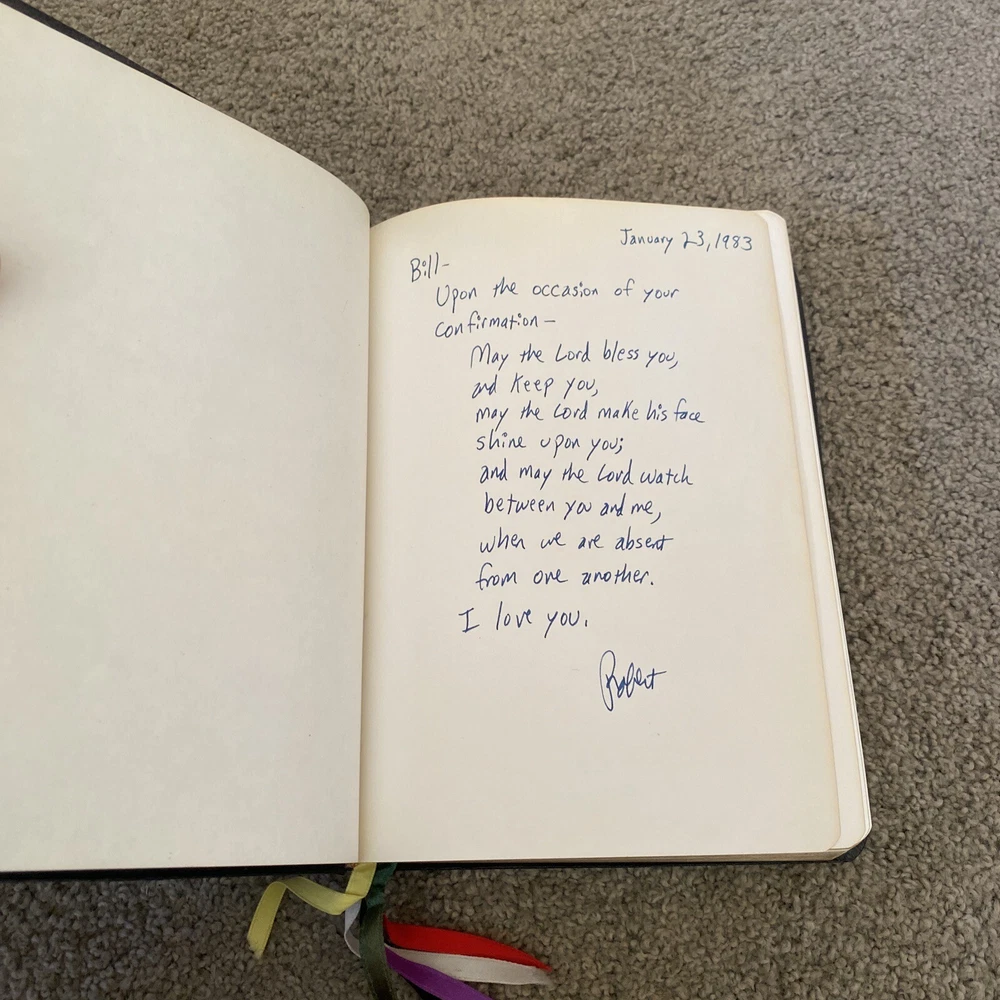 January 23, 1983
Bill-
Upon the occasion of your
confirmation—
May the Lord bless you,
and keep you,
may the Lord make his face
shine upon you;
and may the Lord watch
between you and me,
when we are absent
from one another.
I love you.
Robert